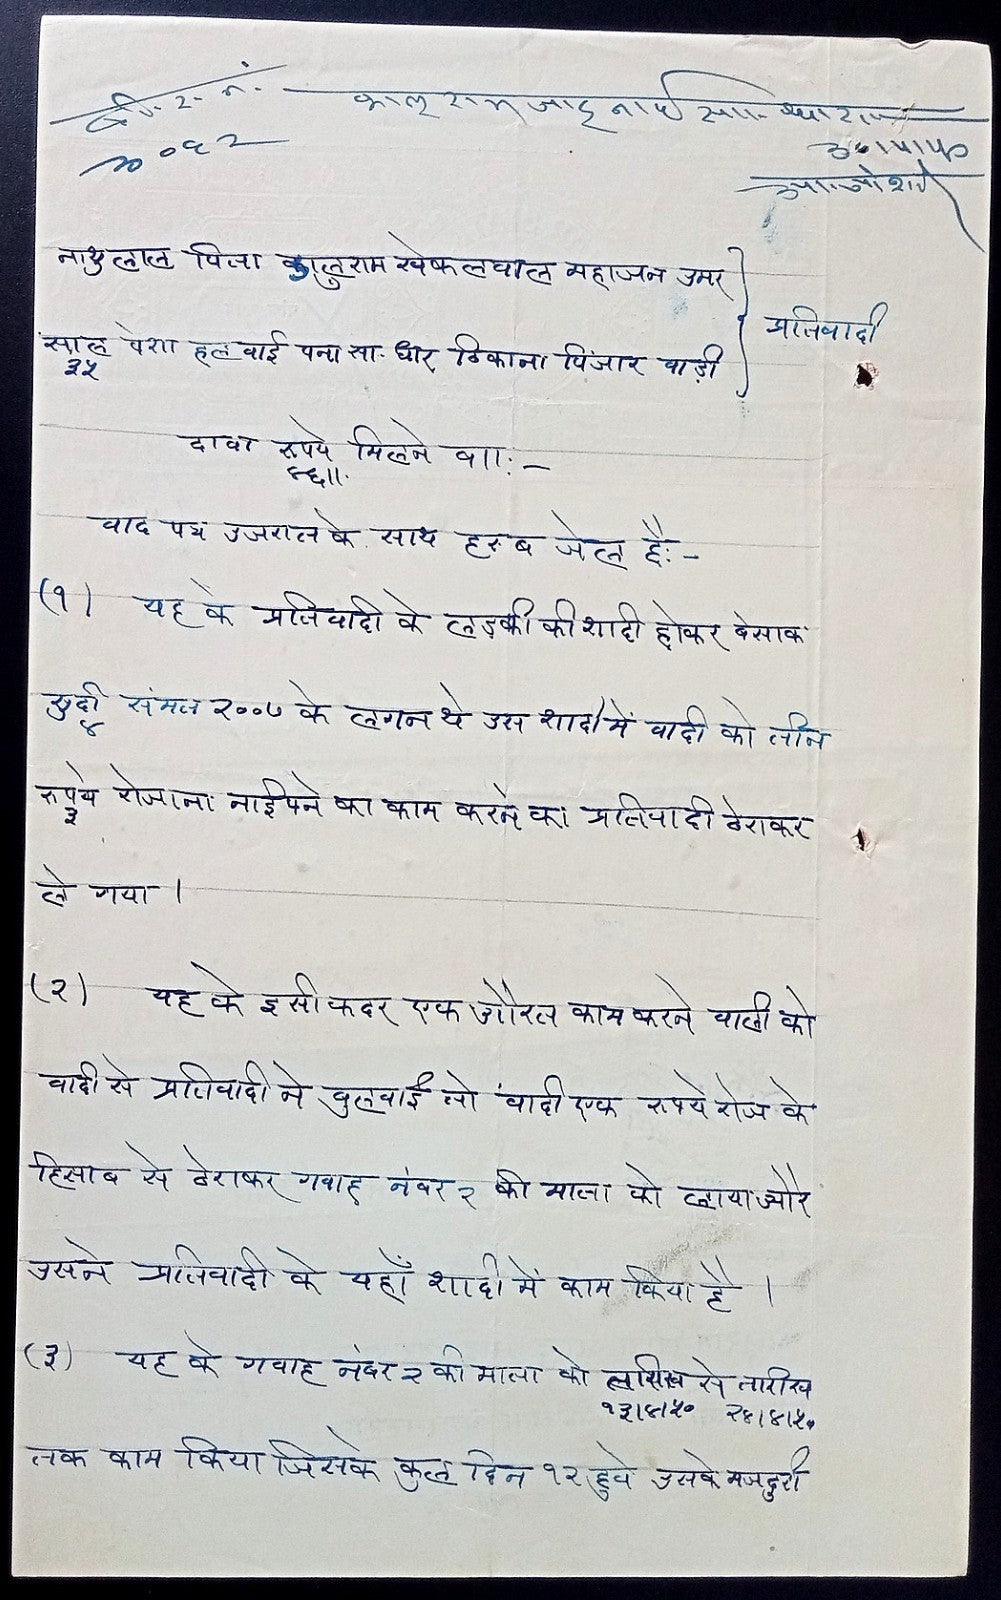 नाथुलाल पिता कालुराम खेकलवाल महाजन उमर
साल पेशा हलवाई पना सा. धार ठिकाना पिंजार वाड़ी
३५
प्रतिवादी
दावा रूपये मिलने बा।:-
वाद पत्र उजरात के साथ हस्ब जेल है:-
(१) यह के प्रतिवादी के लड़की की शादी होकर बेसाक
सुदी संमत २००७ के लगन थे उस शादी में वादी को तीन
४
रूपये रोजाना नाईपने का काम करने का प्रतिवादी ठेराकर
३
ले गया ।
(२) यह के इसी कदर एक औरत काम करने वाली को
वादी से प्रतिवादी ने बुलवाई तो वादी एक रूपये रोज के
हिसाब से ठेराकर गवाह नंबर २ की माता को लाया और
उसने प्रतिवादी के यहाँ शादी में काम किया है ।
(३) यह के गवाह नंबर २ की माता को तारीख से तारीख
१३।४।५० २४।४।५०
तक काम किया जिसके कुल दिन १२ हुवे उसके मजदुरी